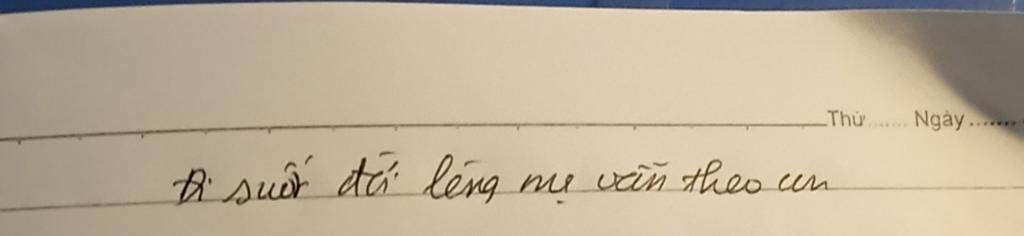 Thứ....... Ngày.......
Đi suốt đời lòng mẹ vẫn theo con